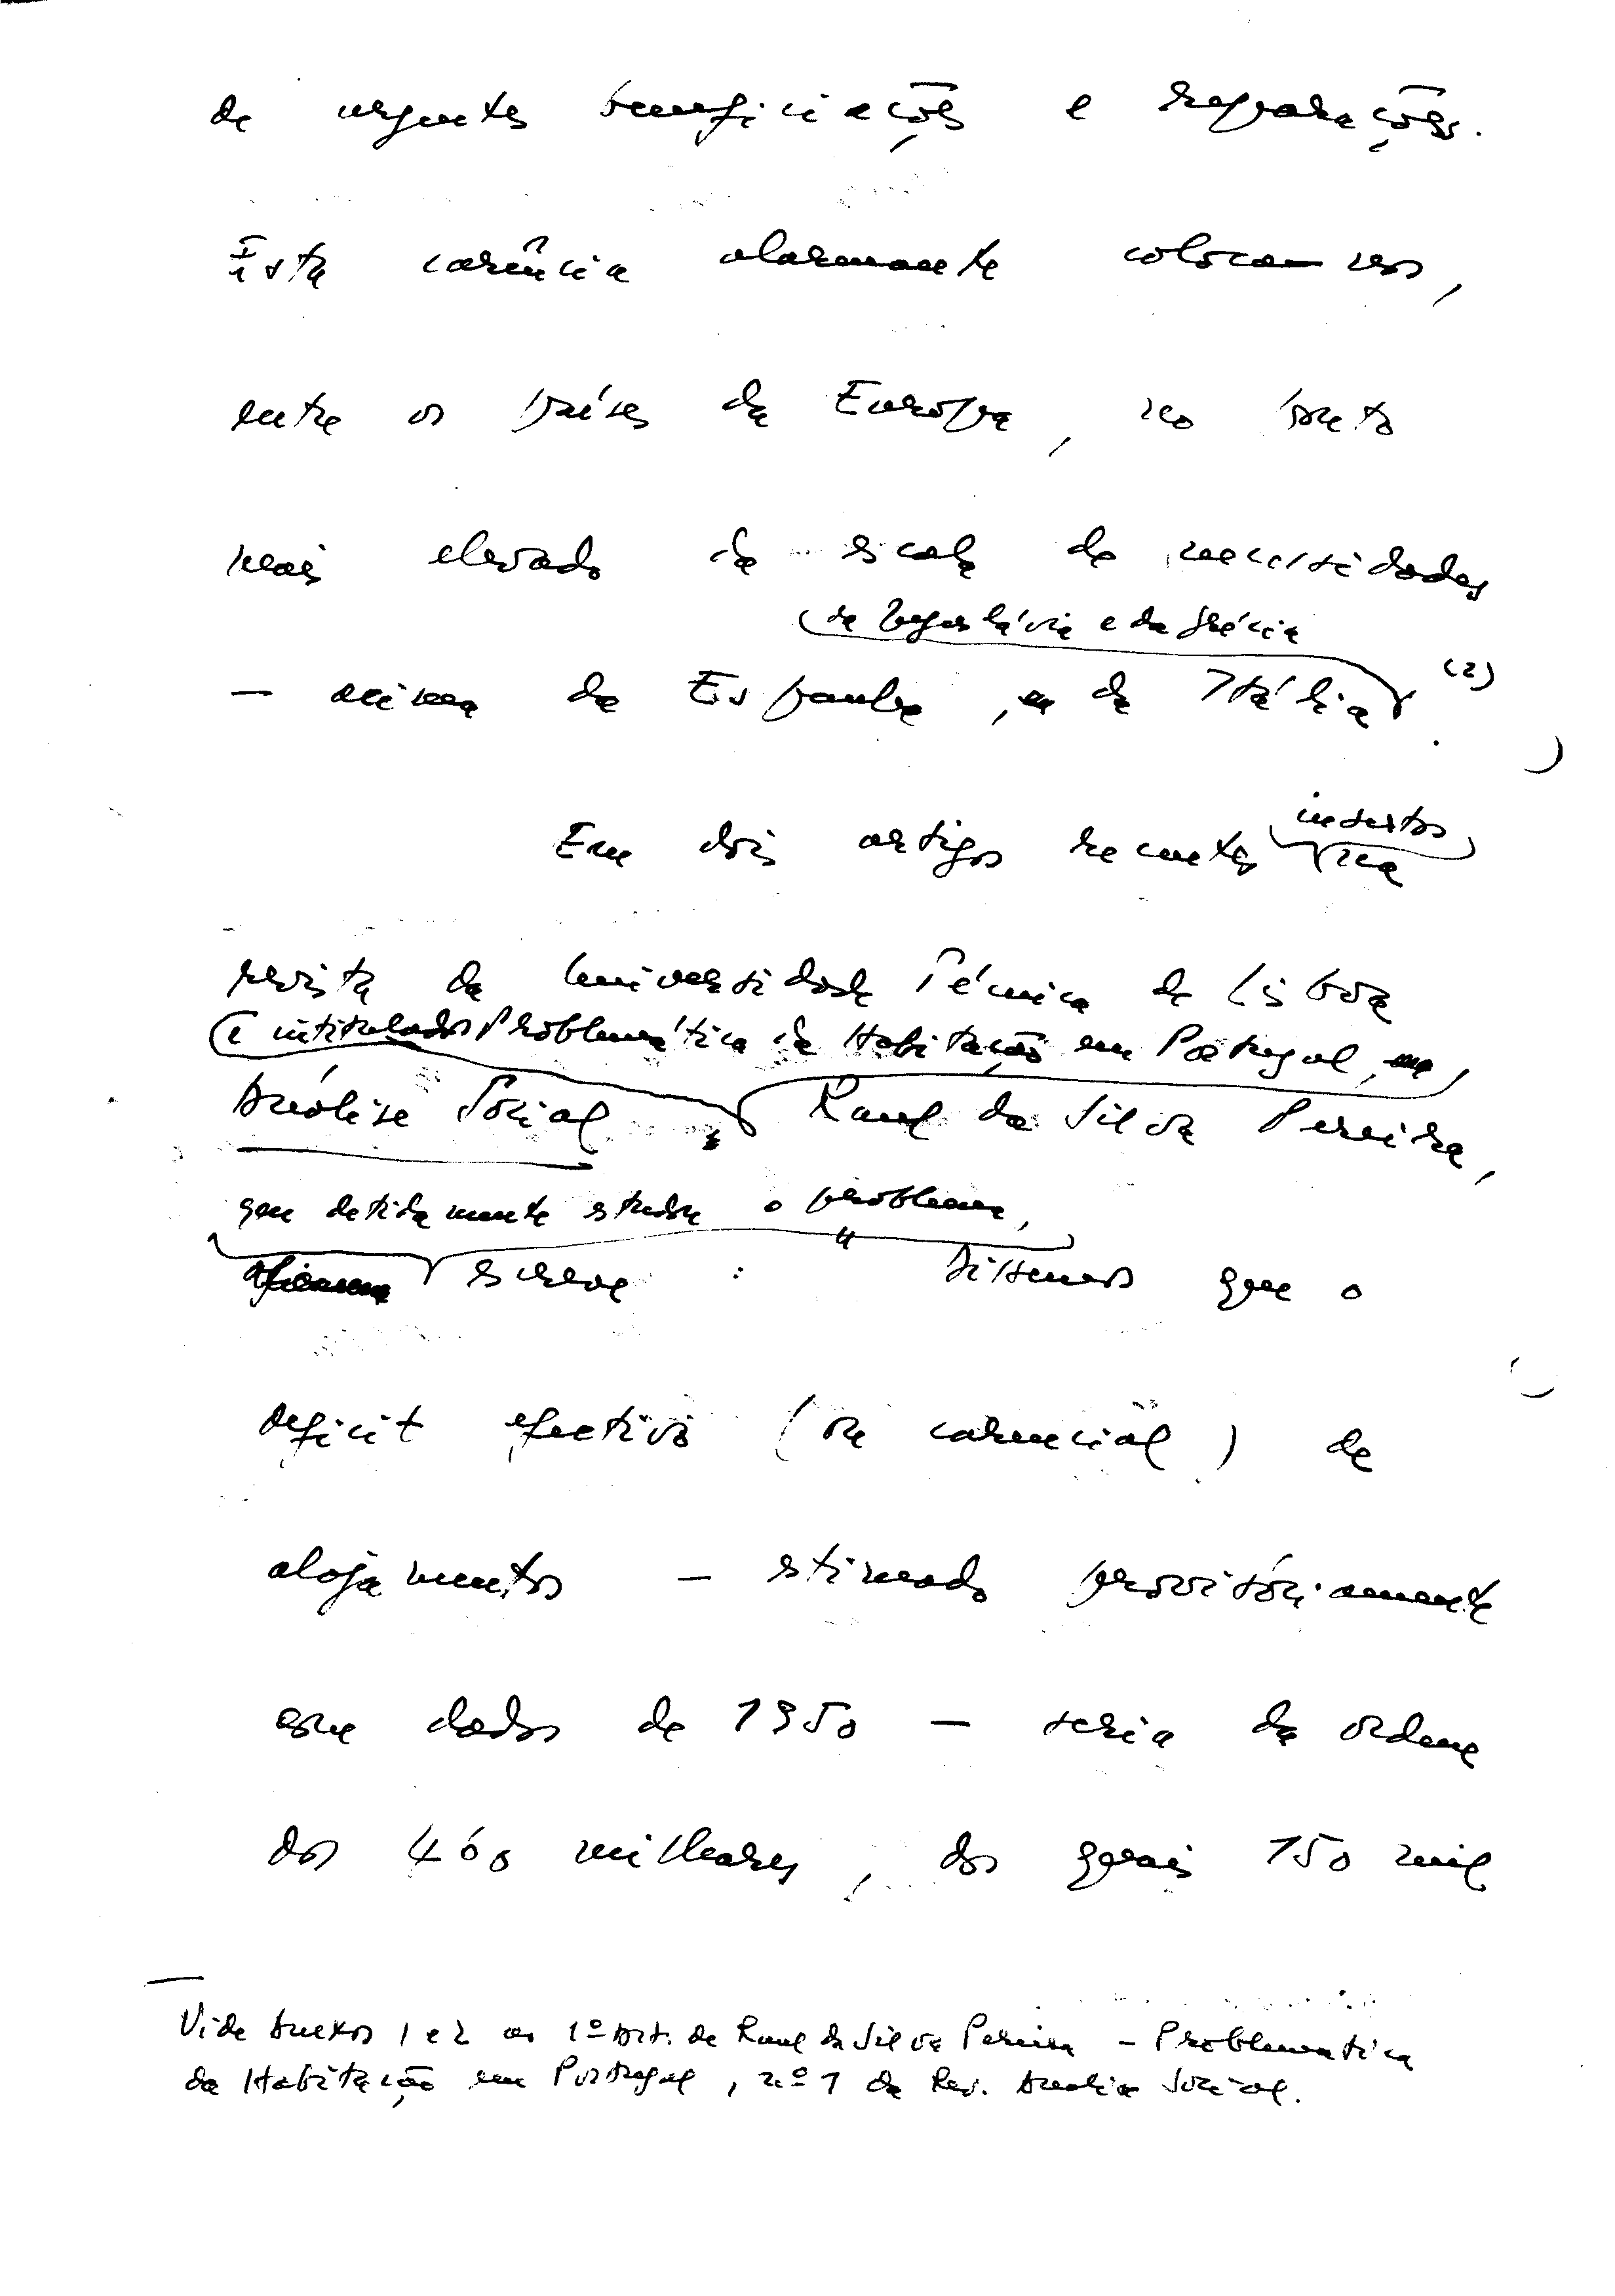 de urgentes beneficiações e reparações.
Esta carência alarmante coloca-nos,
entre os países da Europa, no ponto
mais elevado da escala de necessidades
da Jugoslávia e da Grécia
— acima da Espanha, da Itália (2)
insertos
Em dois artigos recentes na
revista da Universidade Técnica de Lisboa
e intitulados Problemática da Habitação em Portugal,
Análise Social, Raul da Silva Pereira,
que detidamente estudou o problema,
escreve : " Dissemos que o
deficit efectivo (ou carencial) de
alojamentos — estimado provisóriamente
com dados de 1950 — seria da ordem
dos 460 milhares, dos quais 150 mil
Vide Anexos 1 e 2 ao 1º Art. de Raul da Silva Pereira — Problematica
da Habitação em Portugal, nº 1 da Rev. Analise Social.